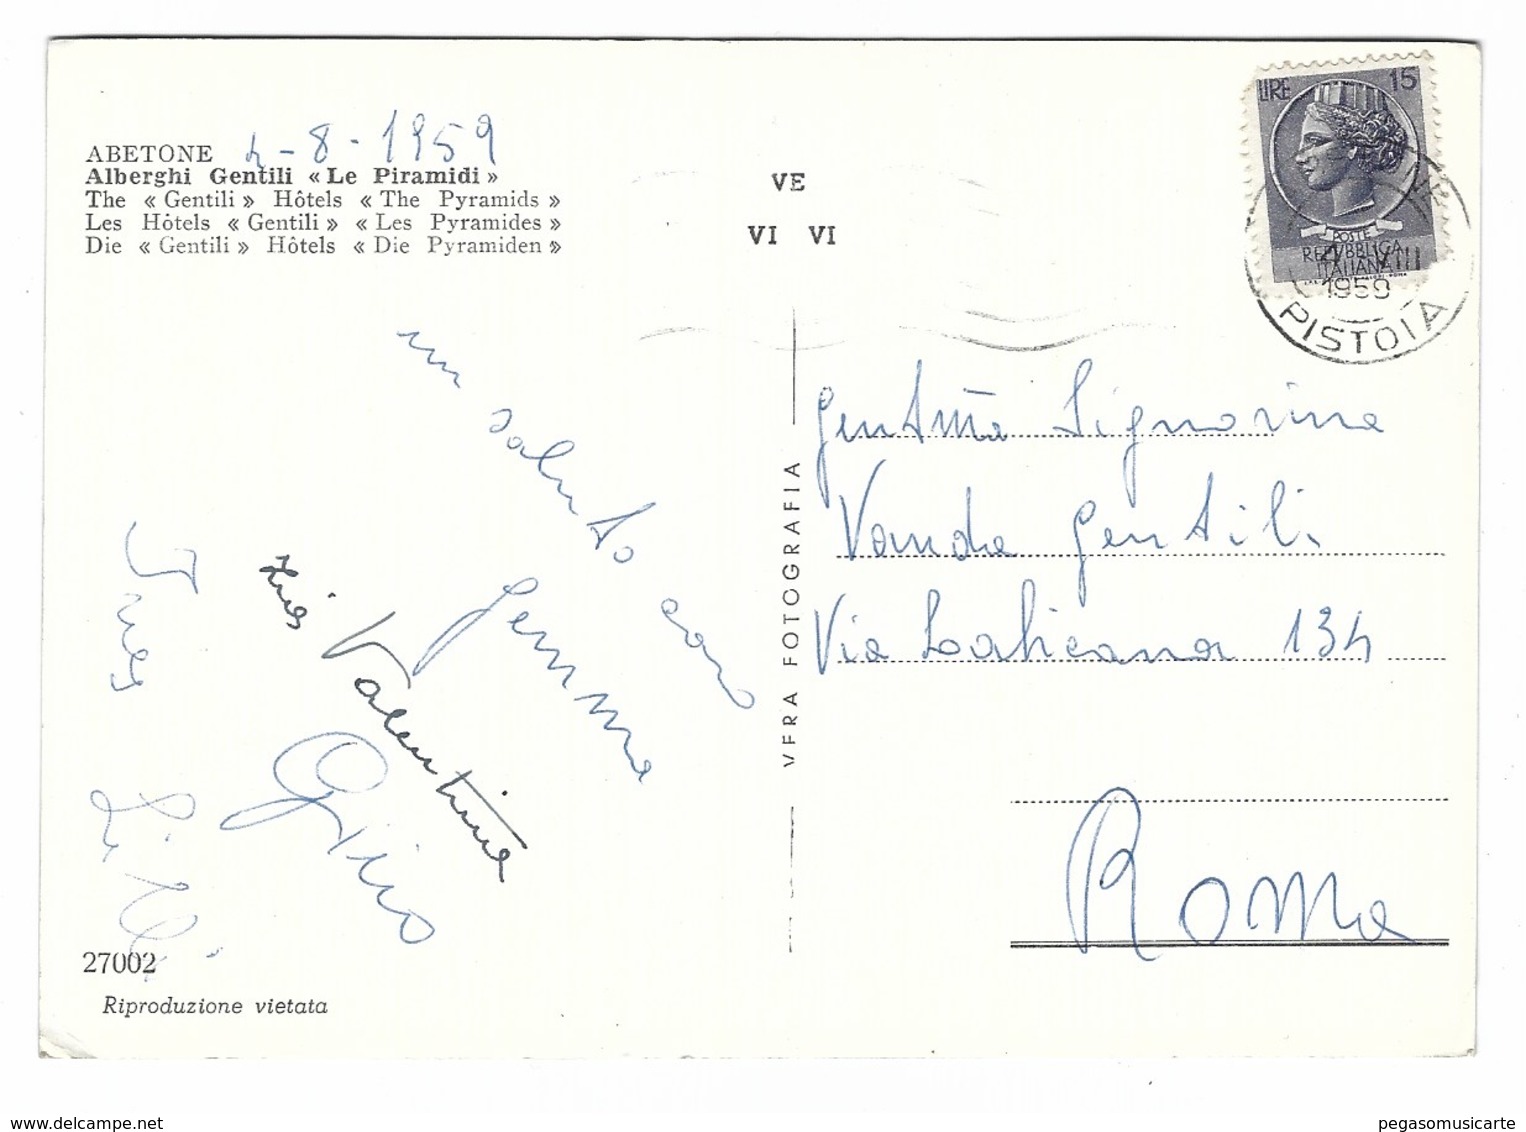 ABETONE 4-8-1959
Alberghi Gentili « Le Piramidi »
The « Gentili » Hôtels « The Pyramids »
Les Hôtels « Gentili » « Les Pyramides »
Die « Gentili » Hôtels « Die Pyramiden »
VE
VI VI
LIRE 15
POSTE
REPVBBLICA
ITALIANA
4 VIII
1959
PISTOIA
un saluto caro
Gemma
Valentina
Gino
Ines
VERA FOTOGRAFIA
Gent.ma Signorina
Vanda Gentili
Via Labicana 134
Roma
27002
Riproduzione vietata
www.delcampe.net
pegasomusicarte